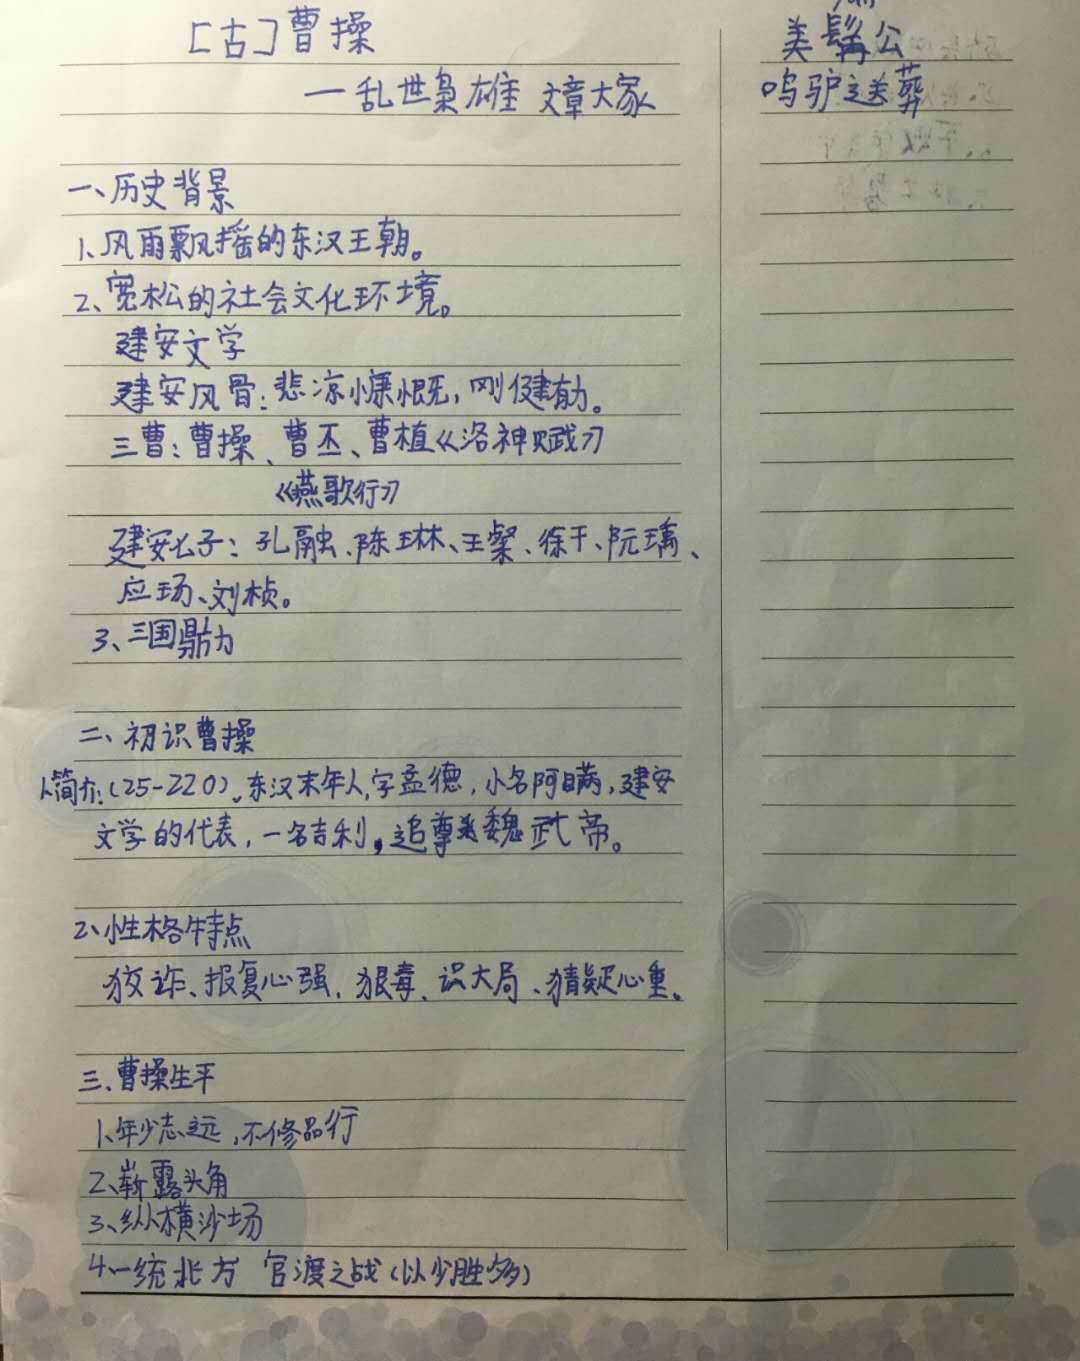 [古]曹操
一乱世枭雄 文章大家
美髯公
鸣驴送葬
一、历史背景
1、风雨飘摇的东汉王朝。
2、宽松的社会文化环境。
建安文学
建安风骨：悲凉慷慨，刚健有力。
三曹：曹操、曹丕、曹植《洛神赋》
《燕歌行》
建安七子：孔融、陈琳、王粲、徐干、阮瑀、
应玚、刘桢。
3、三国鼎力
二、初识曹操
1、简介：(25-220)。东汉末年人,字孟德，小名阿瞒，建安
文学的代表，一名吉利，追尊魏武帝。
2、性格特点
狡诈、报复心强、狠毒、识大局、猜疑心重。
三、曹操生平
1、年少志远，不修品行
2、崭露头角
3、纵横沙场
4、一统北方 官渡之战(以少胜多)